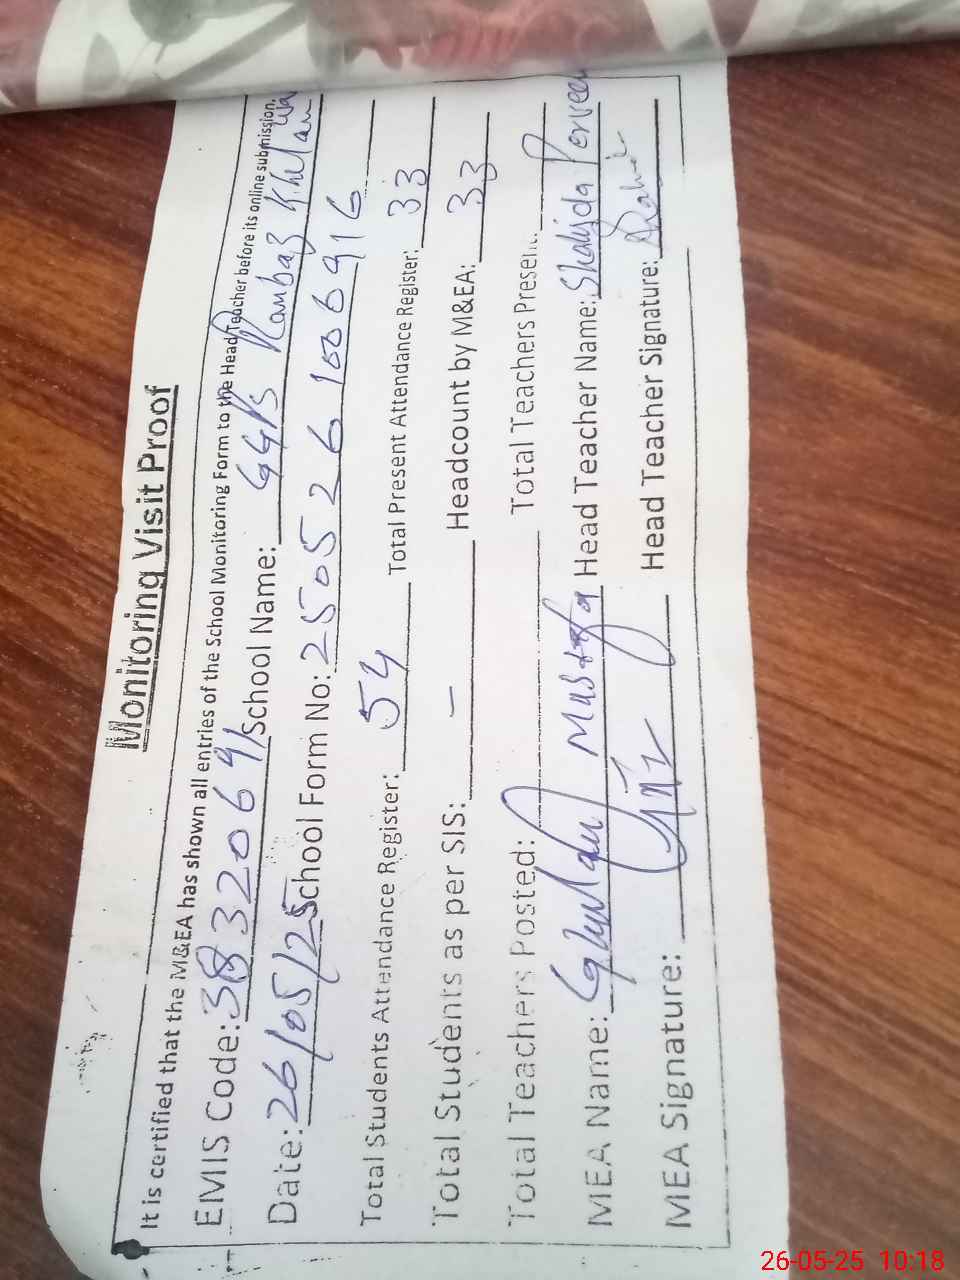 Monitoring Visit Proof
It is certified that the M&EA has shown all entries of the School Monitoring Form to the Head Teacher before its online submission.
EMIS Code: 38320691 School Name: GGPS Rambaz Khelan
Date: 26/05/25 School Form No: 250526100916
Total Students Attendance Register: 54 Total Present Attendance Register: 33
Total Students as per SIS: – Headcount by M&EA: 33
Total Teachers Posted: Total Teachers Present:
MEA Name: Ghulam Mustafa Head Teacher Name: Shahida Perveen
MEA Signature: Head Teacher Signature:
26-05-25 10:18